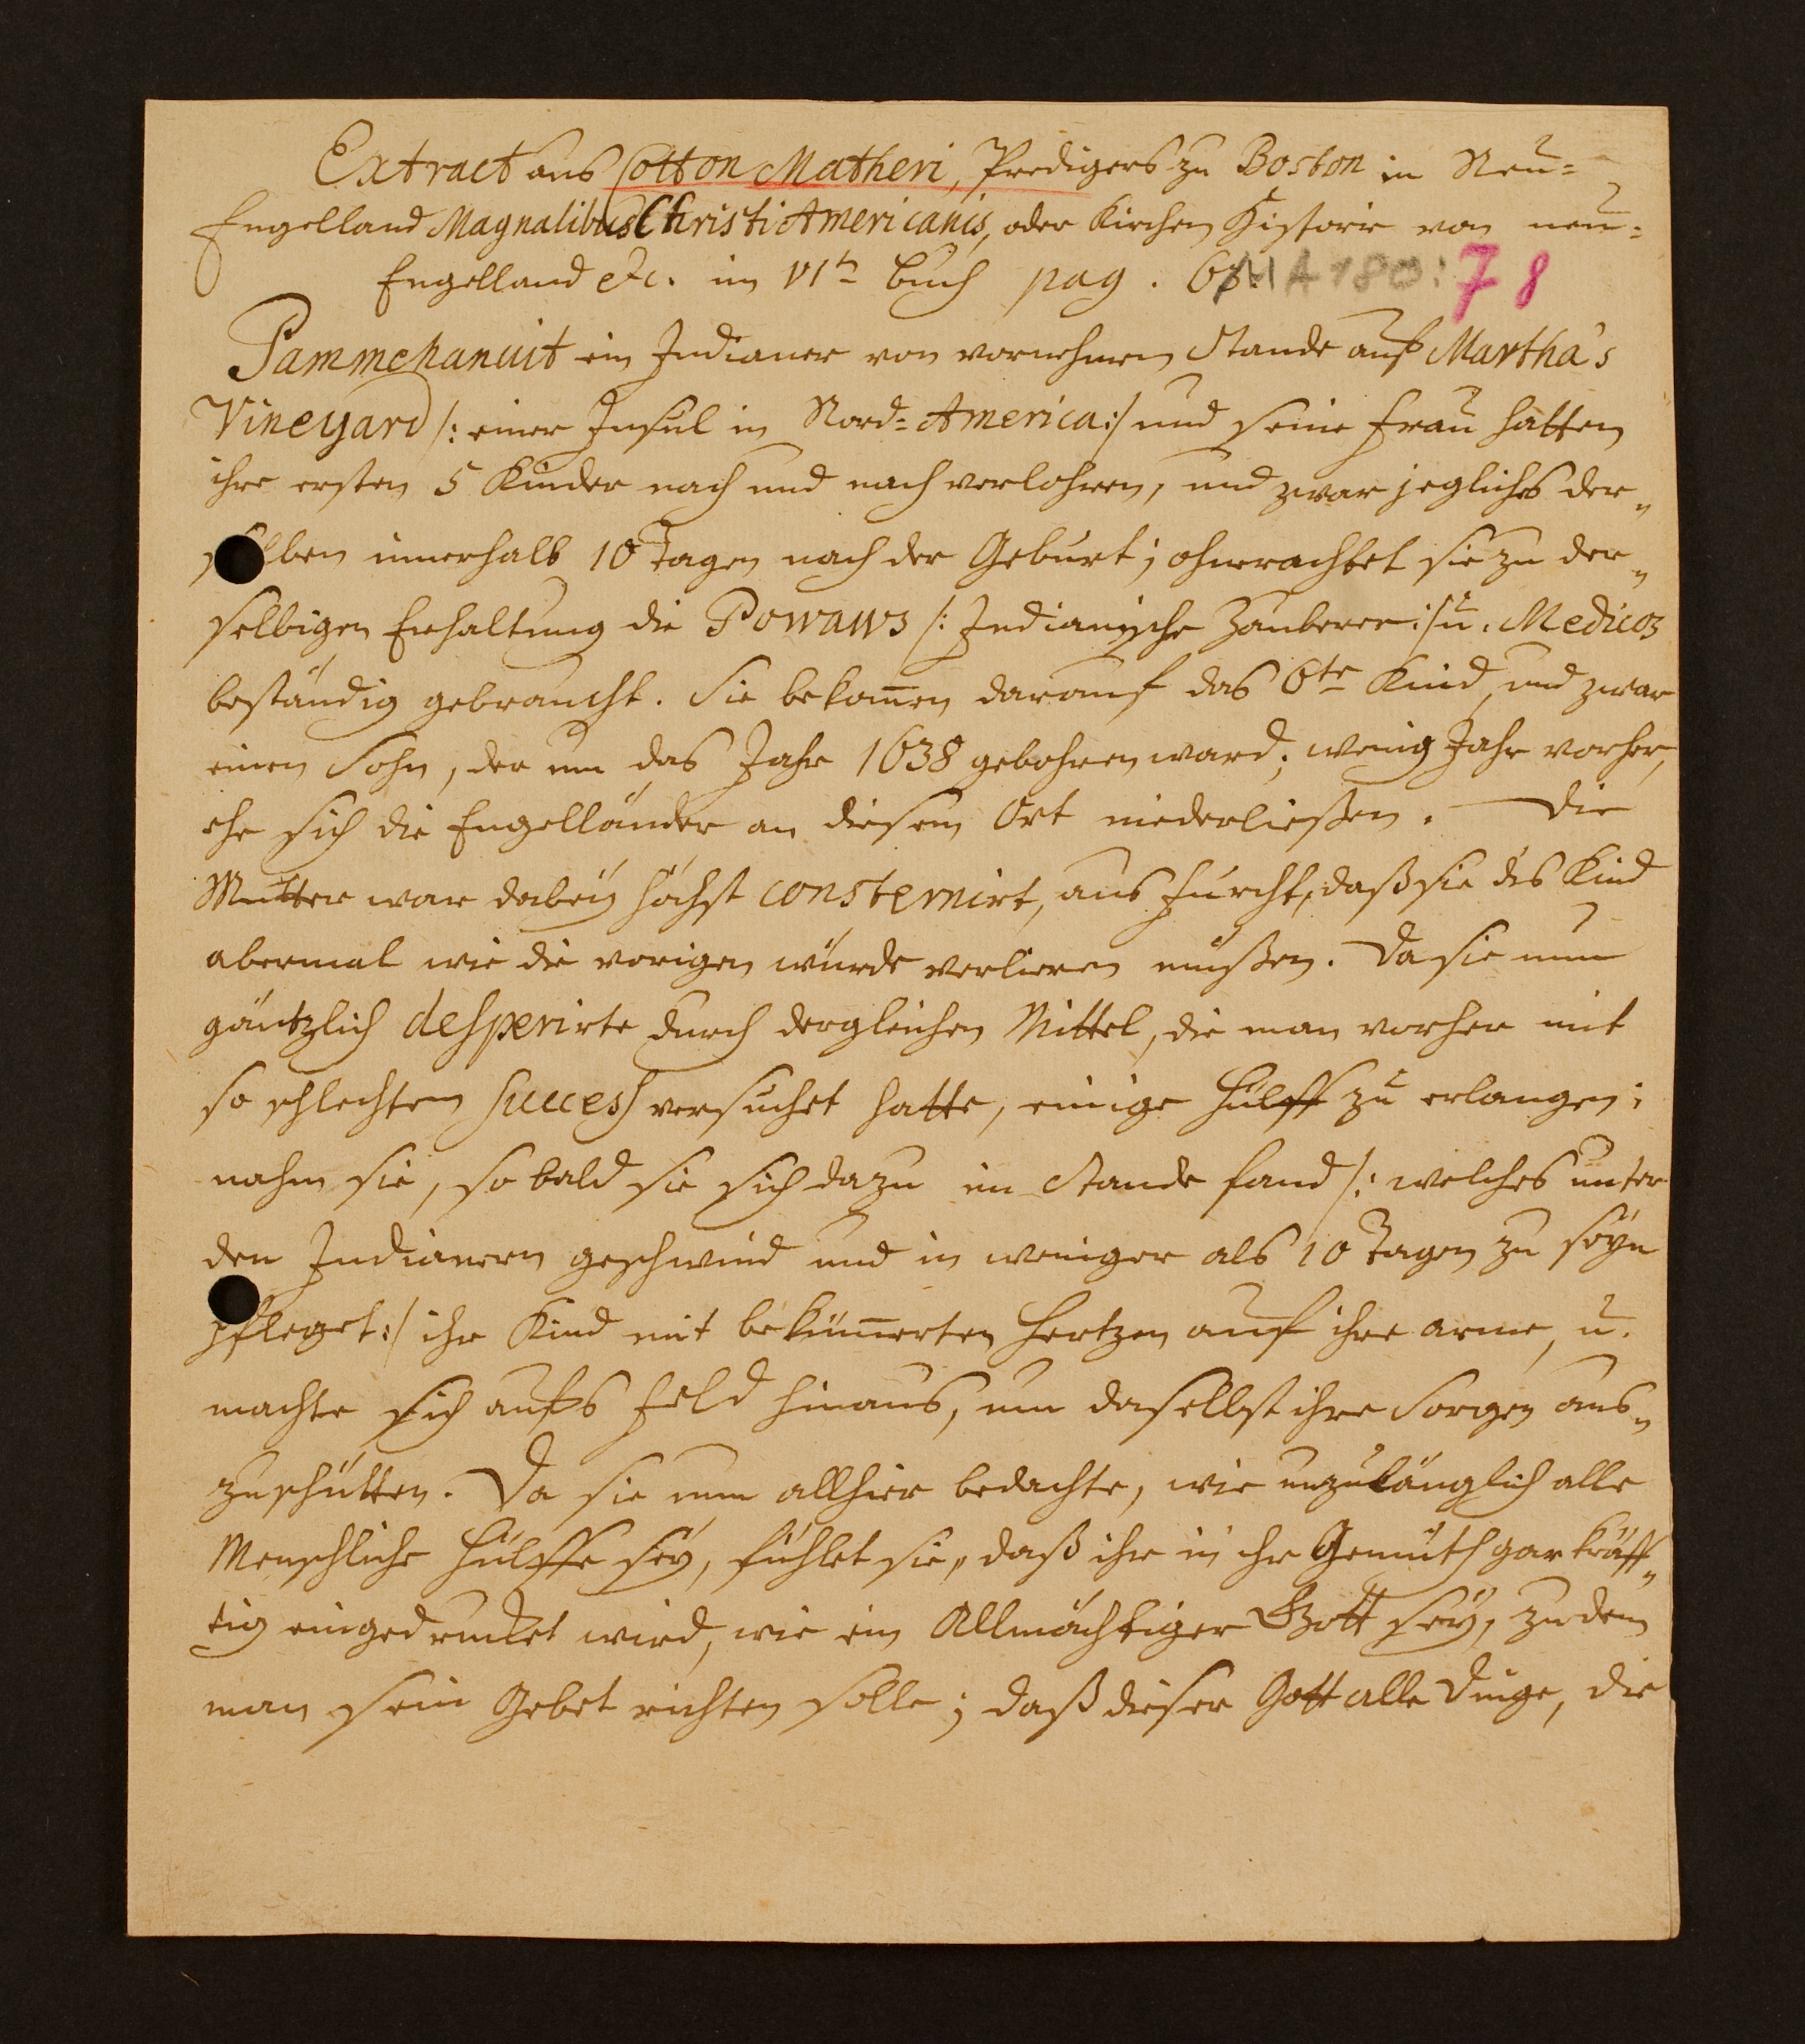 Extract aus Cotton Matheri, Predigers zu Boston in Neu=
Engelland Magnalibus Christi Americanis, oder Kirchen Historie von neu=
Engelland etc. im VIt. buch pag. 63.
M A 180: 78
Pammehanuit ein Indianer von vornehmen Stande auf Martha's
Vineyard /: einer Insul in Nord=America :/ und seine Frau hatten
ihre ersten 5 Kinder nach und nach verlohren, und zwar jegliches der„
selben innerhalb 10 Tagen nach der Geburt; ohnerachtet sie zu der„
selbigen Erhaltung die Powaws /: Indianische Zauberer :/ u. Medicos
beständig gebraucht. Sie bekom̄en darauf das 6te Kind, und zwar
einen Sohn, der um das Jahr 1638 gebohren ward; wenig Jahr vorher,
ehe sich die Engelländer an diesem Ort niederließen. Die
Mutter war dabey höchst consternirt, aus Furcht, daß sie des Kind
abermal wie die vorigen würde verlieren müßen. Da sie nun
gäntzlich desperirte durch dergleichen Mittel, die man vorher mit
so schlechten success versuchet hatte, einige Hülff zu erlangen;
nahm sie, so bald sie sich dazu im Stande fand /: welches unter
den Indianern geschwind und in weniger als 10 Tagen zu seyn
pfleget :/ ihr Kind mit beküm̄erten Hertzen auf ihre arme, u.
machte sich aufs Feld hinaus, um daselbst ihre Sorgen aus„
zuschütten. Da sie nun allhier bedachte, wie unzulänglich alle
Menschliche Hülffe sey, fühlet sie, daß ihr in ihr Gemüth gar kräff„
tig eingedrucket wird, wie ein Allmächtiger Gott sey, zu dem
man sein Gebet richten solle; daß dieser Gott alle Dinge, die